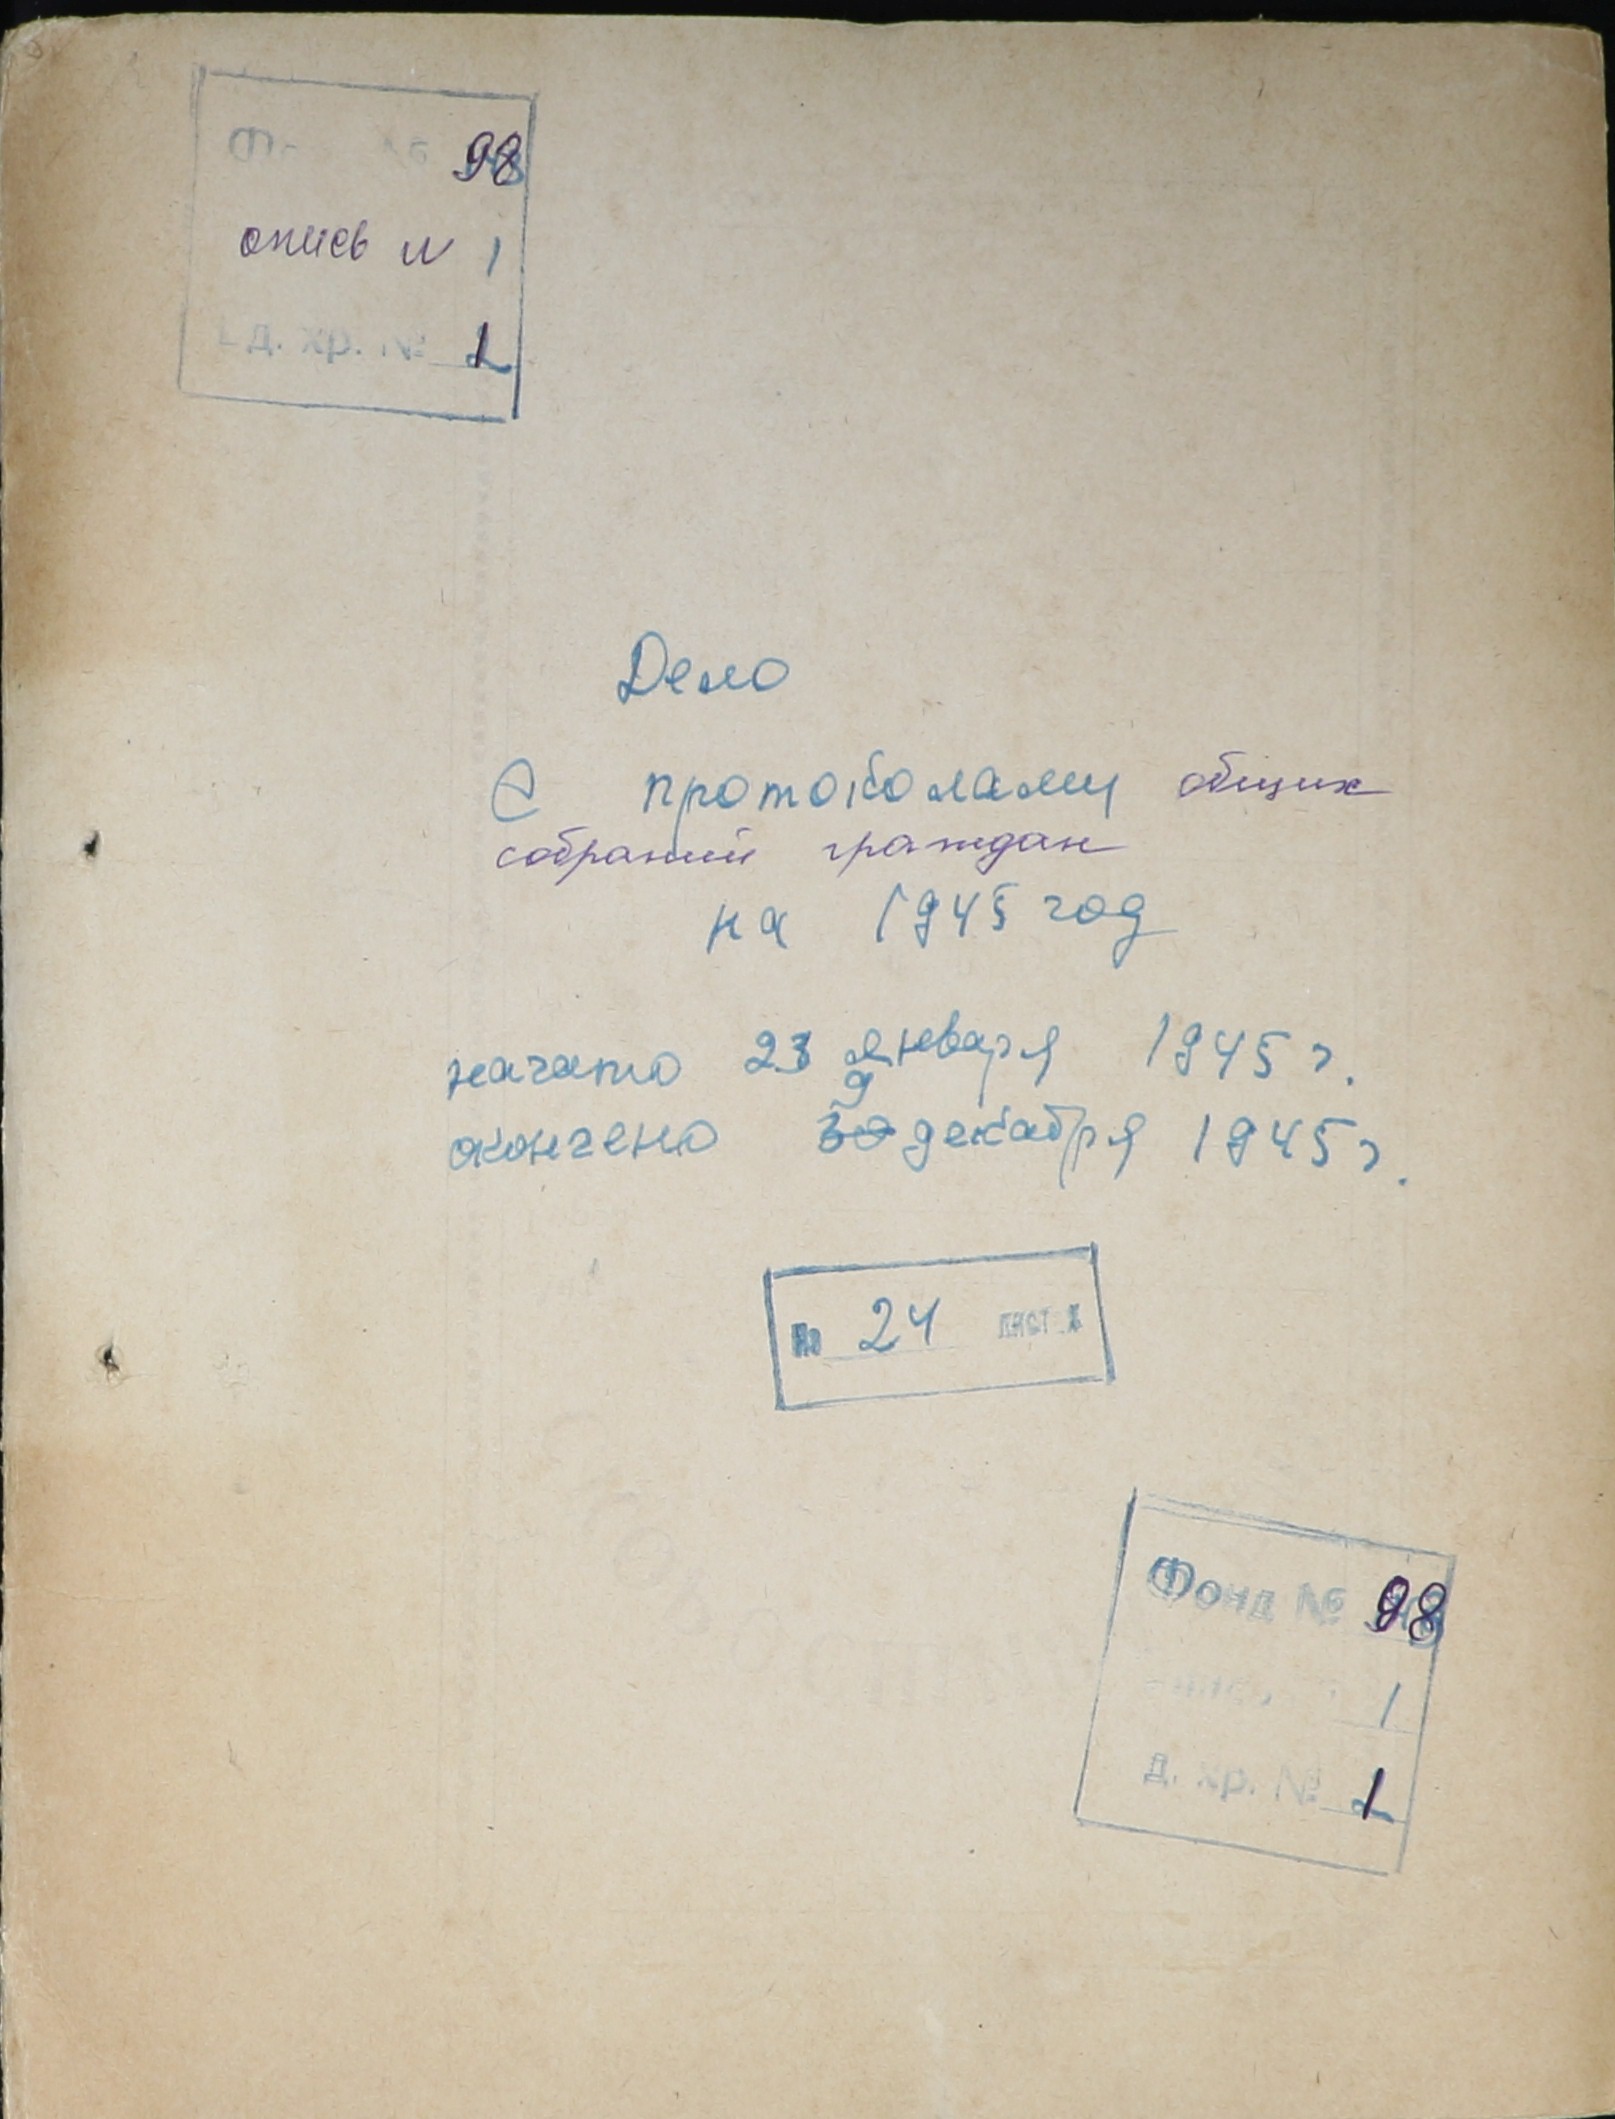 98
опись N 1
Ед. хр. № 1
Дело
С протоколами общих
собраний граждан
на 1945 год
начато 23 января 1945 г.
9
окончено 30 декабря 1945 г.
На 24 лист х
Фонд № 98
1
д. хр. № 1